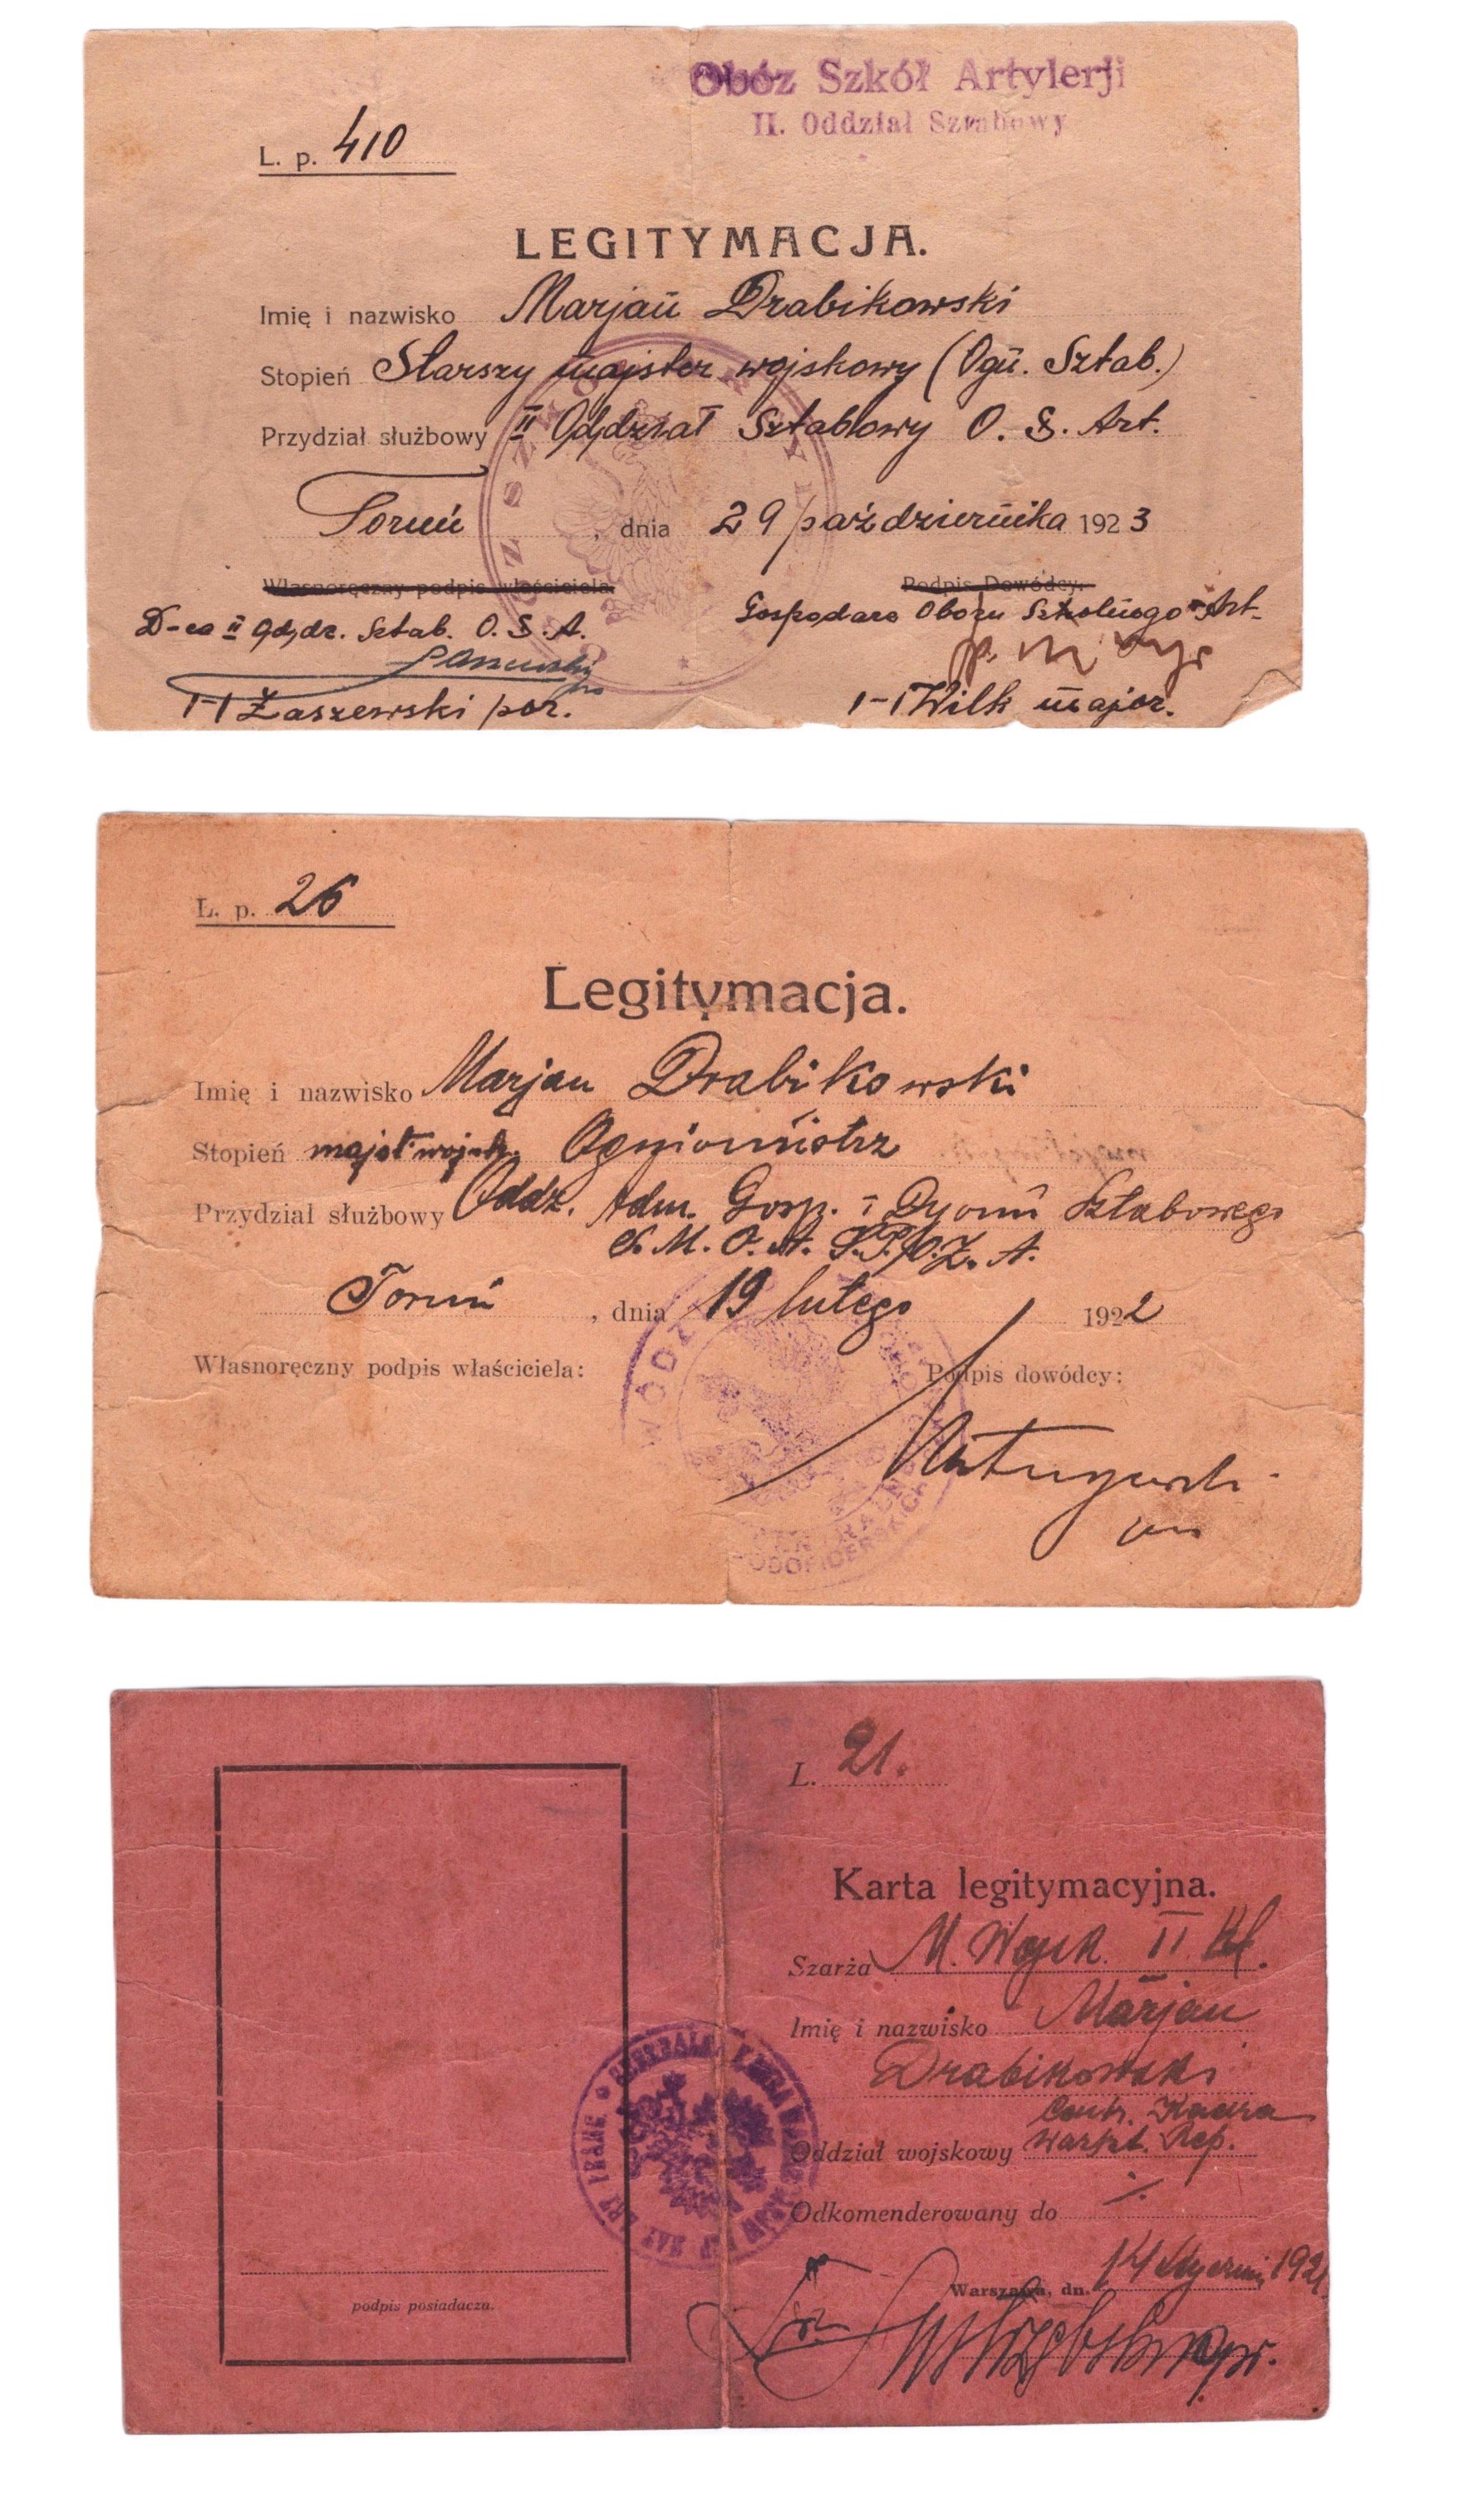 Obóz Szkół Artylerji
II. Oddział Sztabowy
L. p. 410
LEGITYMACJA.
Imię i nazwisko Marjan Drabikowski
Stopień Starszy majster wojskowy (Ogn. Sztab.)
Przydział służbowy II Oddział Sztabowy O. S. Art.
Toruń, dnia 29 października 1923
Własnoręczny podpis właściciela: Podpis Dowódcy:
D-ca II Oddz. Sztab. O. S. A. Gospodarz Obozu Szkolnego Art.
/-/ Żaszewski por. /-/ Wilk major.
L. p. 26
Legitymacja.
Imię i nazwisko Marjan Drabikowski
Stopień majst. wojsk. Ogniomistrz
Przydział służbowy Oddz. Adm. Gosp. i Dyonu Sztabowego
Toruń, dnia 19 lutego 1922
Własnoręczny podpis właściciela: Podpis dowódcy:
L. 21.
Karta legitymacyjna.
Szarża M. Wojsk. II Kl.
Imię i nazwisko Marjan
Drabikowski
Centr. Kadra
Oddział wojskowy Warszt. Rep.
Odkomenderowany do
Warszawa, dn. 14 Styczeń 1921
podpis posiadacza.